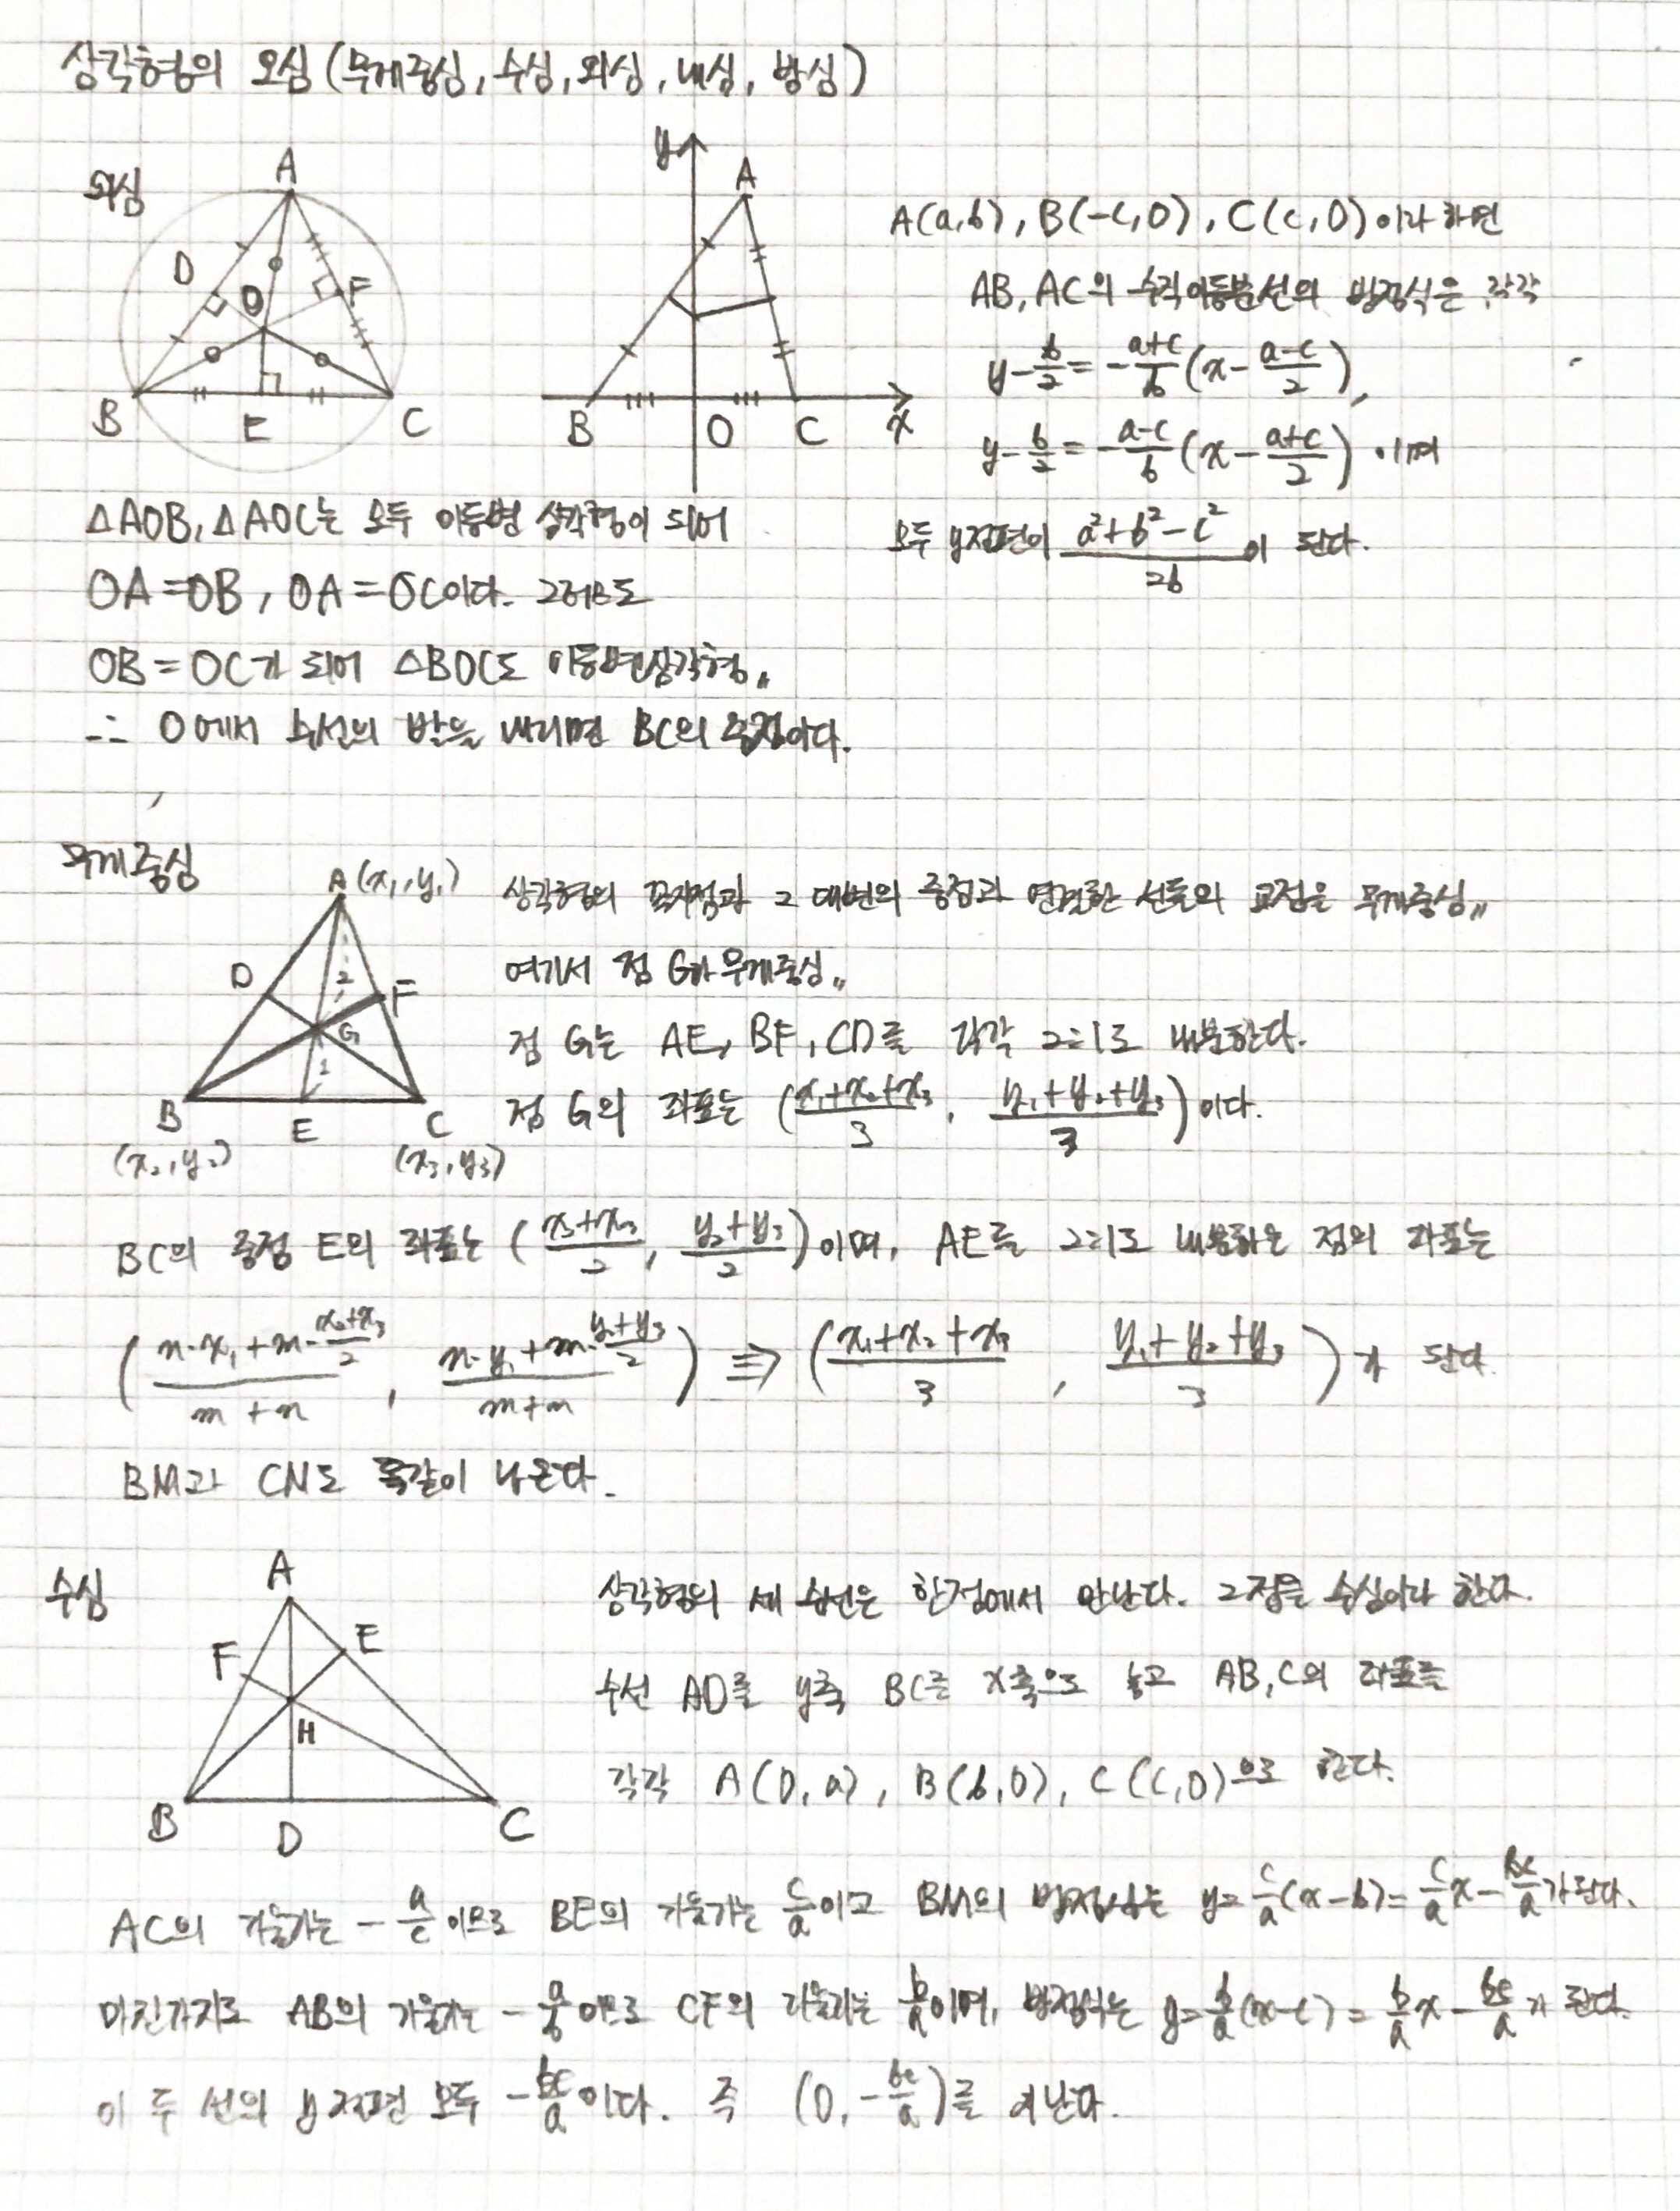 삼각형의 오심 (무게중심, 수심, 외심, 내심, 방심)
외심
A
D
O
F
B
E
C
y
A
B
O
C
x
A(a,b), B(-c,0), C(c,0) 이라 하면
AB, AC의 수직이등분선의 방정식은 각각
y-b/2 = -(a+c)/b (x-(a-c)/2),
y-b/2 = -(a-c)/b (x-(a+c)/2) 이며
모두 y절편이 (a²+b²-c²)/2b 이 된다.
△AOB, △AOC는 모두 이등변 삼각형이 되어
OA=OB, OA=OC이다. 그러므로
OB=OC가 되어 △BOC도 이등변삼각형〃
∴ O에서 수선의 발을 내리면 BC의 중점이다.
무게중심
A(x₁,y₁)
D
2
F
G
1
B
E
C
(x₂,y₂)
(x₃,y₃)
삼각형의 꼭지점과 그 대변의 중점과 연결한 선들의 교점을 무게중심〃
여기서 점 G가 무게중심〃
점 G는 AE, BF, CD를 각각 2:1로 내분한다.
점 G의 좌표는 ((x₁+x₂+x₃)/3, (y₁+y₂+y₃)/3) 이다.
BC의 중점 E의 좌표는 ((x₂+x₃)/2, (y₂+y₃)/2) 이며, AE를 2:1로 내분하는 점의 좌표는
((n·x₁+m·(x₂+x₃)/2)/(m+n), (n·y₁+m·(y₂+y₃)/2)/(m+n)) ⇒ ((x₁+x₂+x₃)/3, (y₁+y₂+y₃)/3) 가 된다.
BM과 CN도 똑같이 나온다.
수심
A
F
E
H
B
D
C
삼각형의 세 수선은 한점에서 만난다. 그점을 수심이라 한다.
수선 AD를 y축 BC를 x축으로 놓고 AB, C의 좌표를
각각 A(0,a), B(b,0), C(c,0)으로 한다.
AC의 기울기는 -a/c 이므로 BE의 기울기는 c/a이고 BM의 방정식는 y=c/a(x-b)=c/a x-bc/a 가 된다.
마찬가지로 AB의 기울기는 -a/b 이므로 CF의 기울기는 b/a이며, 방정식는 y=b/a(x-c)=b/a x-bc/a 가 된다.
이 두 선의 y절편 모두 -bc/a 이다. 즉 (0, -bc/a)를 지난다.